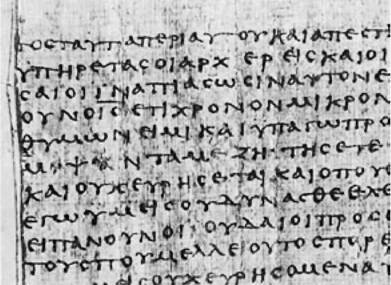 ΤΟϹΤΑΥΤΑΠΕΡΙΑΥΤΟΥΚΑΙΑΠΕϹΤΙ
ΥΠΗΡΕΤΑϹΟΙΑΡΧΙΕΡΕΙϹΚΑΙΟΙ
ϹΑΙΟΙΙΝΑΠΙΑϹΩϹΙΝΑΥΤΟΝΕ
ΟΥΝΟΙ̅Ϲ̅ΕΤΙΧΡΟΝΟΝΜΙΚΡΟΝ
ΘΥΜΩΝΕΙΜΙΚΑΙΥΠΑΓΩΠΡΟ
ΜΨΑΝΤΑΜΕΖΗΤΗϹΕΤΕ
ΚΑΙΟΥΧΕΥΡΗϹΕΤΑΙΚΑΙΟΠΟΥ
ΕΓΩΥΜΕΙϹΟΥΔΥΝΑϹΘΕΕΛΘΕ
ΕΙΠΑΝΟΥΝΟΙΙΟΥΔΑΙΟΙΠΡΟϹ
ΤΟΥϹΠΟΥΜΕΛΛΕΙΟΥΤΟϹΠΟΡΕ
ΜΕΙϹΟΥΧΕΥΡΗϹΟΜΕΝΑ